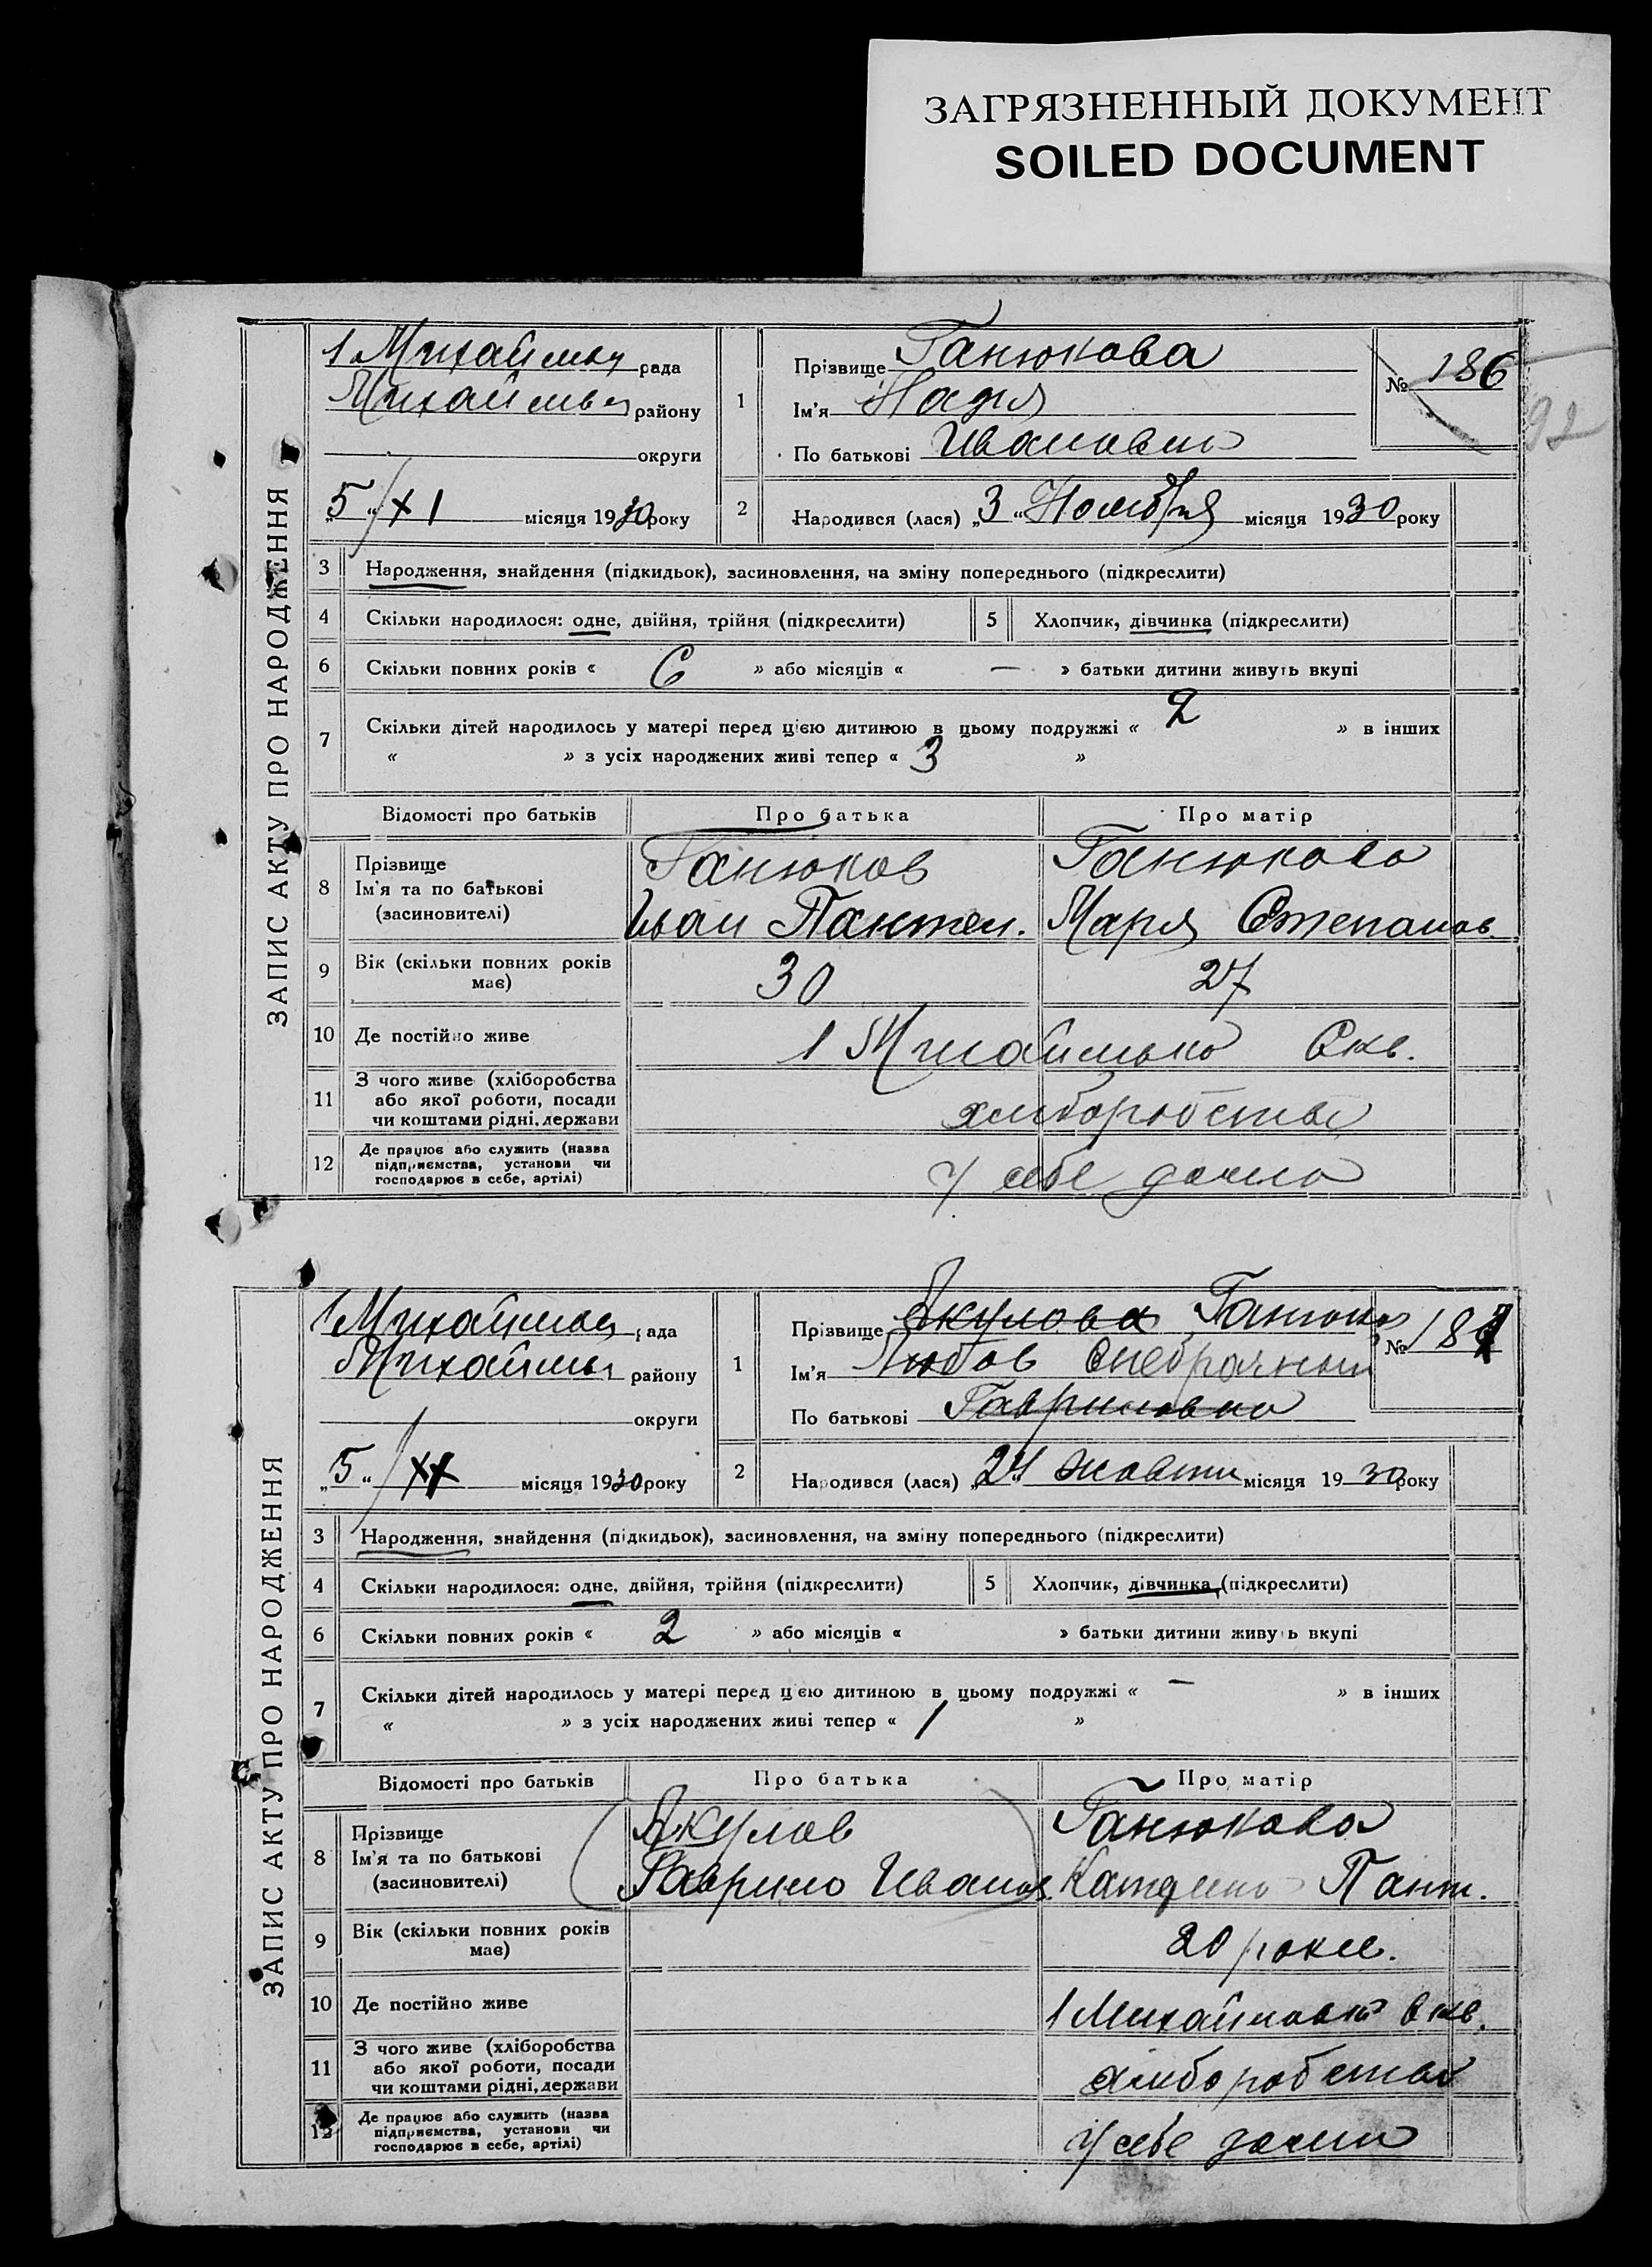 ЗАГРЯЗНЕННЫЙ ДОКУМЕНТ
SOILED DOCUMENT
ЗАПИС АКТУ ПРО НАРОДЖЕННЯ
1 рада
району
округи
„5“ / XI місяця 1930 року
1
Прізвище Ганюкова
Ім'я Надя
По батькові
№ 186
92
2
Народився (лася) „3“ Ноября місяця 1930 року
3 Народження, знайдення (підкидьок), засиновлення, на зміну попереднього (підкреслити)
4 Скільки народилося: одне, двійня, трійня (підкреслити) 5 Хлопчик, дівчинка (підкреслити)
6 Скільки повних років « 6 » або місяців « — » батьки дитини живуть вкупі
7 Скільки дітей народилось у матері перед цією дитиною в цьому подружжі « 2 » в інших
« » з усіх народжених живі тепер « 3 »
Відомості про батьків Про батька Про матір
8 Прізвище Ганюков Ганюкова
Ім'я та по батькові
(засиновителі) Иван Пантел. Мария Степанов.
9 Вік (скільки повних років
має) 30 27
10 Де постійно живе 1
11 З чого живе (хліборобства
або якої роботи, посади
чи коштами рідні, держави хлиборобство
12 Де працює або служить (назва
підприємства, установи чи
господарює в себе, артілі) у себе дома
ЗАПИС АКТУ ПРО НАРОДЖЕННЯ
1 рада
району
округи
„5“ / місяця 1930 року
1
Прізвище Якулова
Ім'я Любов
По батькові Гавриловна
№ 187
2
Народився (лася) „24 жовтни місяця 1930 року
3 Народження, знайдення (підкидьок), засиновлення, на зміну попереднього (підкреслити)
4 Скільки народилося: одне, двійня, трійня (підкреслити) 5 Хлопчик, дівчинка (підкреслити)
6 Скільки повних років « 2 » або місяців « » батьки дитини живуть вкупі
7 Скільки дітей народилось у матері перед цією дитиною в цьому подружжі « — » в інших
« » з усіх народжених живі тепер « 1 »
Відомості про батьків Про батька Про матір
8 Прізвище Якулов Ганюкова
Ім'я та по батькові
(засиновителі) Гаврило Иванов. Пант.
9 Вік (скільки повних років
має) 20 роки.
10 Де постійно живе 1
11 З чого живе (хліборобства
або якої роботи, посади
чи коштами рідні, держави хлиборобство
12 Де працює або служить (назва
підприємства, установи чи
господарює в себе, артілі) У себе дома